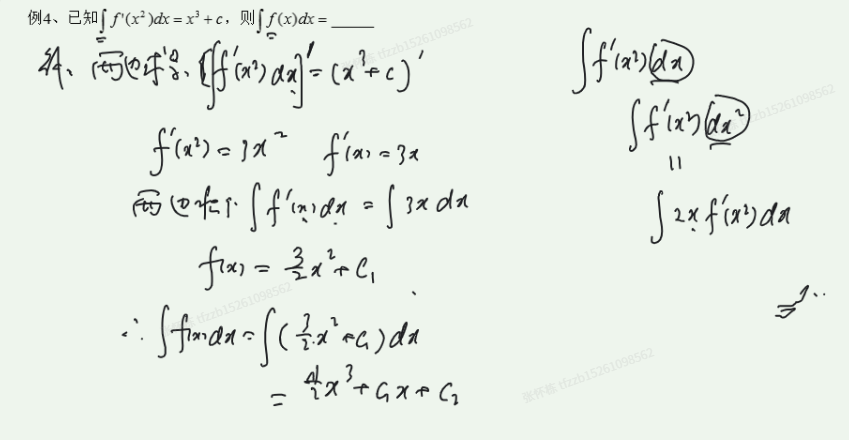 例4、已知∫f'(x²)dx=x³+c，则∫f(x)dx=_____
解、两边求导、[∫f'(x²)dx]'=(x³+c)'
f'(x²)=3x² f'(x)=3x
两边积分、∫f'(x)dx=∫3xdx
f(x)=3/2x²+C₁
∴∫f(x)dx=∫(3/2x²+C₁)dx
=1/2x³+C₁x+C₂
∫f'(x²)dx
∫f'(x²)dx²
=
∫2xf'(x²)dx
tfzzb15261098562
tfzzb15261098562
tfzzb15261098562
张怀栋 tfzzb15261098562